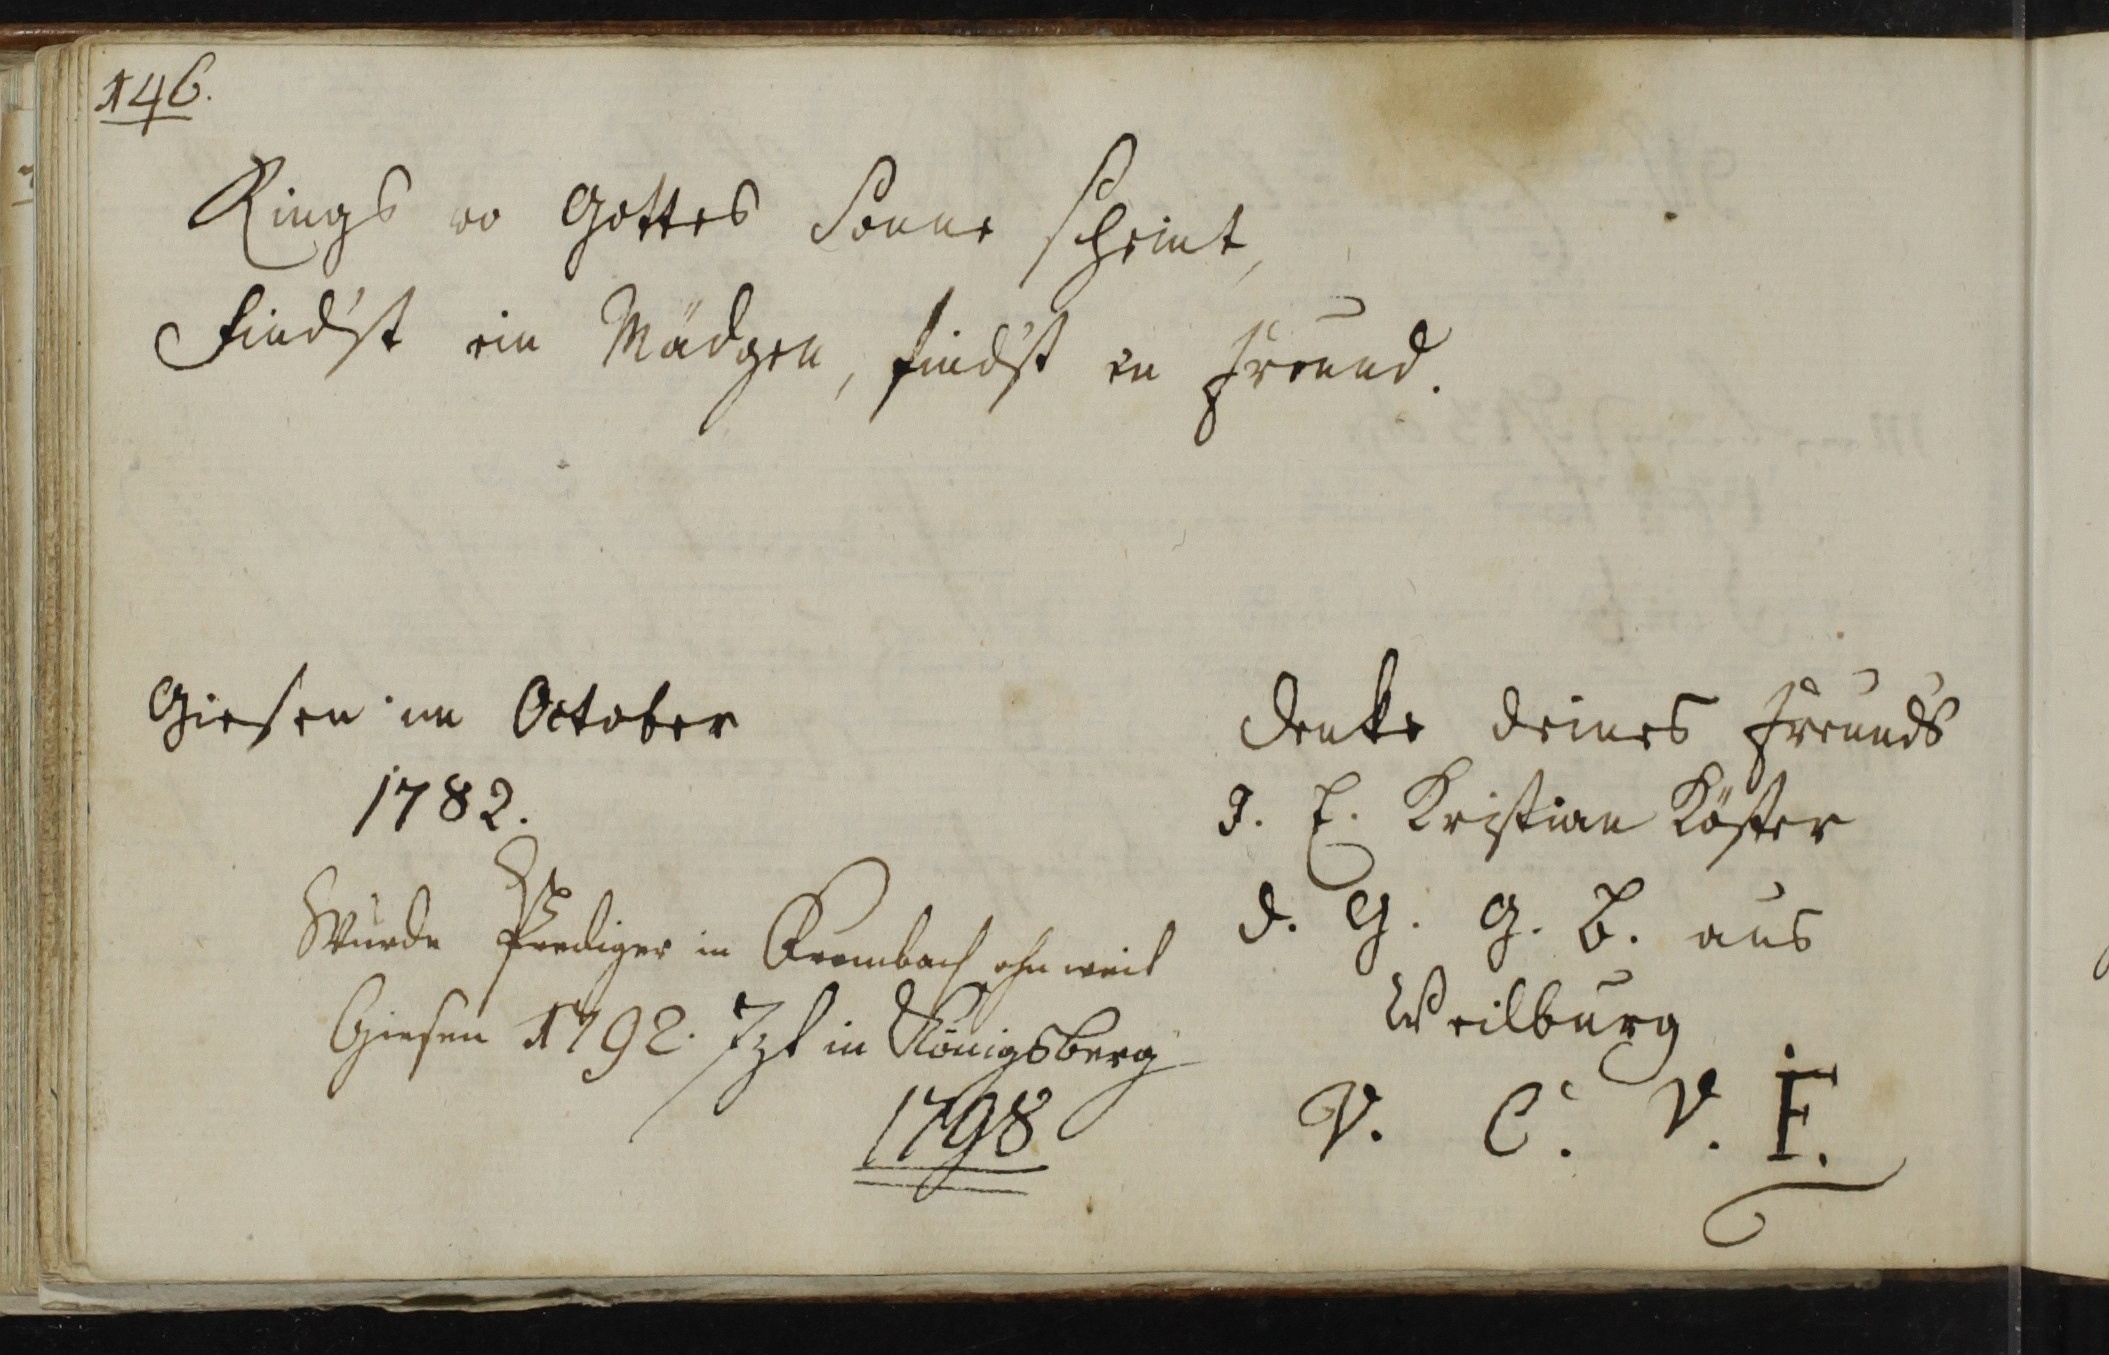 146.
Rings wo Gottes Sonne scheint,
Find'st ein Mädgen, find'st en Freund.
Giesen im October
1782.
Denke deines Freunds
J. E. Kristian Köster
d. G. G. B. aus
Weilburg
V. C. V. F.
Wurde Prediger in Krumbach ohnweit
Giesen 1792. Jzt in Königsberg
1798